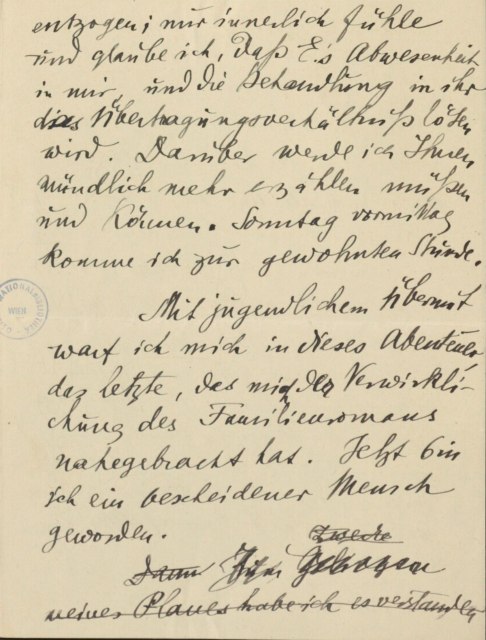 entzogen; nur innerlich fühle
und glaube ich, daß E's Abwesenheit
in mir, und die Behandlung in ihr
dies Übertragungsverhältniß lösen
wird. Darüber werde ich Ihnen
mündlich mehr erzählen müßen
und können. Sonntag vormittag
komme ich zur gewohnten Stunde.
Mit jugendlichem Übermut
warf ich mich in dieses Abenteuer,
das letzte, das mich der Verwirkli-
chung des Familienromans
nahegebracht hat. Jetzt bin
ich ein bescheidener Mensch
geworden.
Zwecke
Dann
meines Planes habe ich es verstanden
WIEN